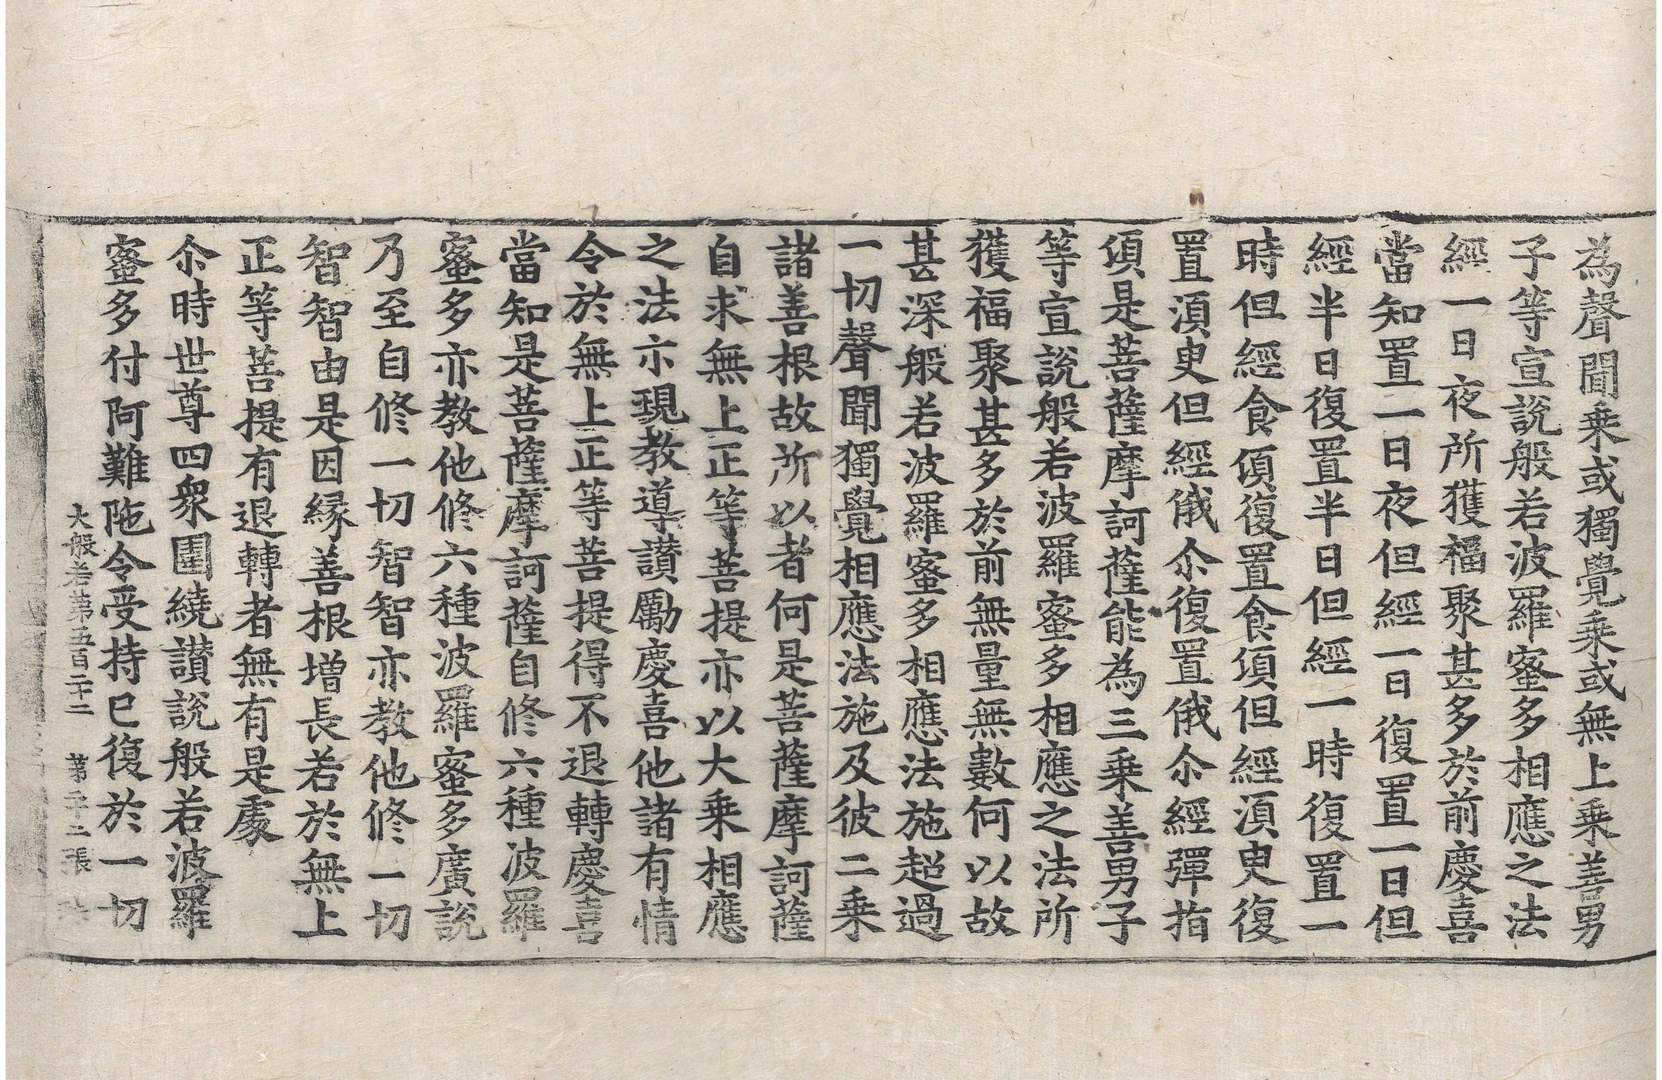 為聲聞乘或獨覺乘或無上乘善男
子等宣說般若波羅蜜多相應之法
經一日夜所獲福聚甚多於前慶喜
當知置一日夜但經一日復置一日但
經半日復置半日但經一時復置一
時但經食湏復置食湏但經湏臾復
置湏臾但經俄尒復置俄尒經彈指
湏是菩薩摩訶薩能為三乘善男子
等宣說般若波羅蜜多相應之法所
獲福聚甚多於前無量無數何以故
甚深般若波羅蜜多相應法施超過
一切聲聞獨覺相應法施及彼二乘
諸善根故所以者何是菩薩摩訶薩
自求無上正等菩提亦以大乘相應
之法亦現教導讃勵慶喜他諸有情
令於無上正等菩提得不退轉慶喜
當知是菩薩摩訶薩自修六種波羅
蜜多亦教他修六種波羅蜜多廣說
乃至自修一切智智亦教他修一切
智智由是因縁善根增長若於無上
正等菩提有退轉者無有是處
尒時世尊四衆圍繞讃說般若波羅
蜜多付阿難陁令受持已復於一切
大般若第五百二十二　第二十二張